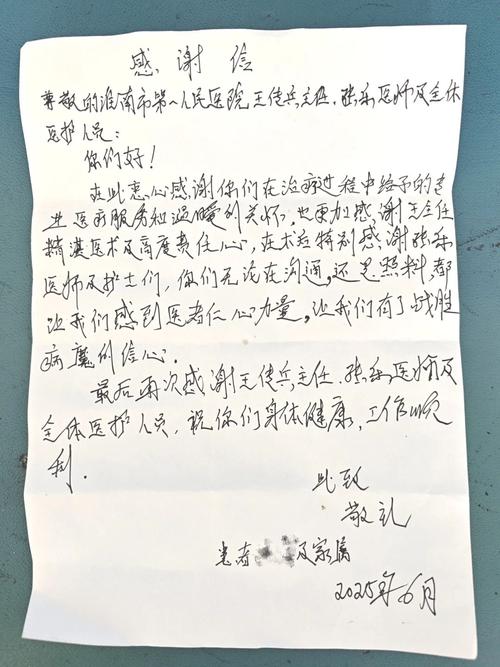 感谢信
尊敬的淮南市第一人民医院王传兵主任，张乐医师及全体
医护人员：
你们好！
在此衷心感谢你们在治病过程中给予的专
业医疗服务和温暖的关怀，也更加感谢王主任
精湛医术及高度责任心，在术后特别感谢张乐
医师及护士们，你们无论在沟通，还是照料，都
让我们感到医者仁心力量，让我们有了战胜
病魔的信心。
最后再次感谢王传兵主任，张乐医师及
全体医护人员，祝你们身体健康，工作顺
利．
此致
敬礼
患者 及家属
2025年6月